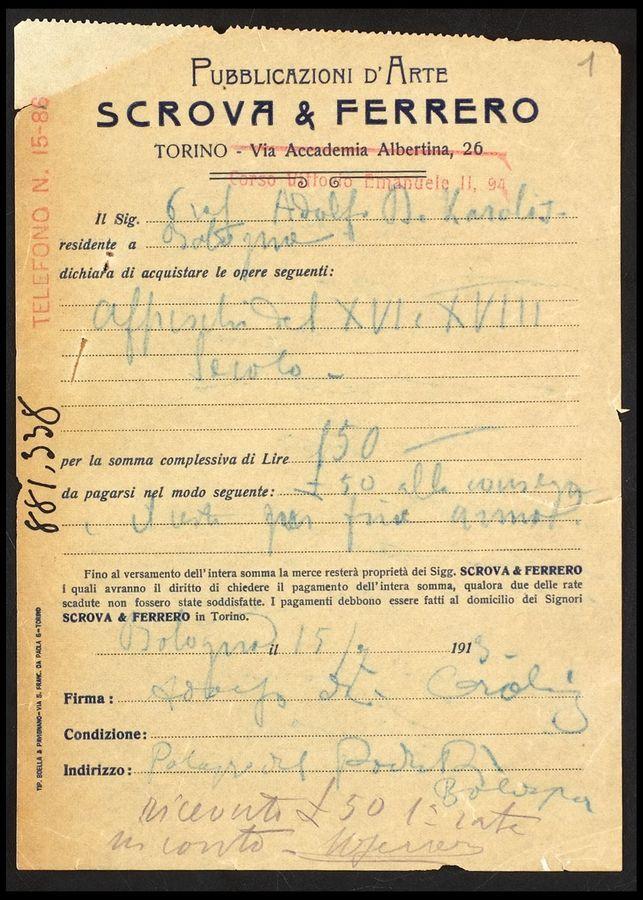 1
PUBBLICAZIONI D'ARTE
SCROVA & FERRERO
TORINO - Via Accademia Albertina, 26
Corso Vittorio Emanuele II, 94
TELEFONO N. 15-86
Il Sig. Prof. Adolfo De Karolis
residente a Bologna
dichiara di acquistare le opere seguenti:
Affreschi del XVI e XVIII
Secolo -
881,338
per la somma complessiva di Lire 150 —
da pagarsi nel modo seguente: £ 50 alla consegna
per fine
Fino al versamento dell'intera somma la merce resterà proprietà dei Sigg. SCROVA & FERRERO
i quali avranno il diritto di chiedere il pagamento dell'intera somma, qualora due delle rate
scadute non fossero state soddisfatte. I pagamenti debbono essere fatti al domicilio dei Signori
SCROVA & FERRERO in Torino.
Bologna il 15/ 191
Firma: Adolfo De Carolis
Condizione:
Indirizzo: Palazzo del Podestà
Bologna
ricevuto £ 50 1a rata
in conto -
TIP. BOELLA & PAVIGNANO-VIA S. FRANC. DA PAOLA 6-TORINO